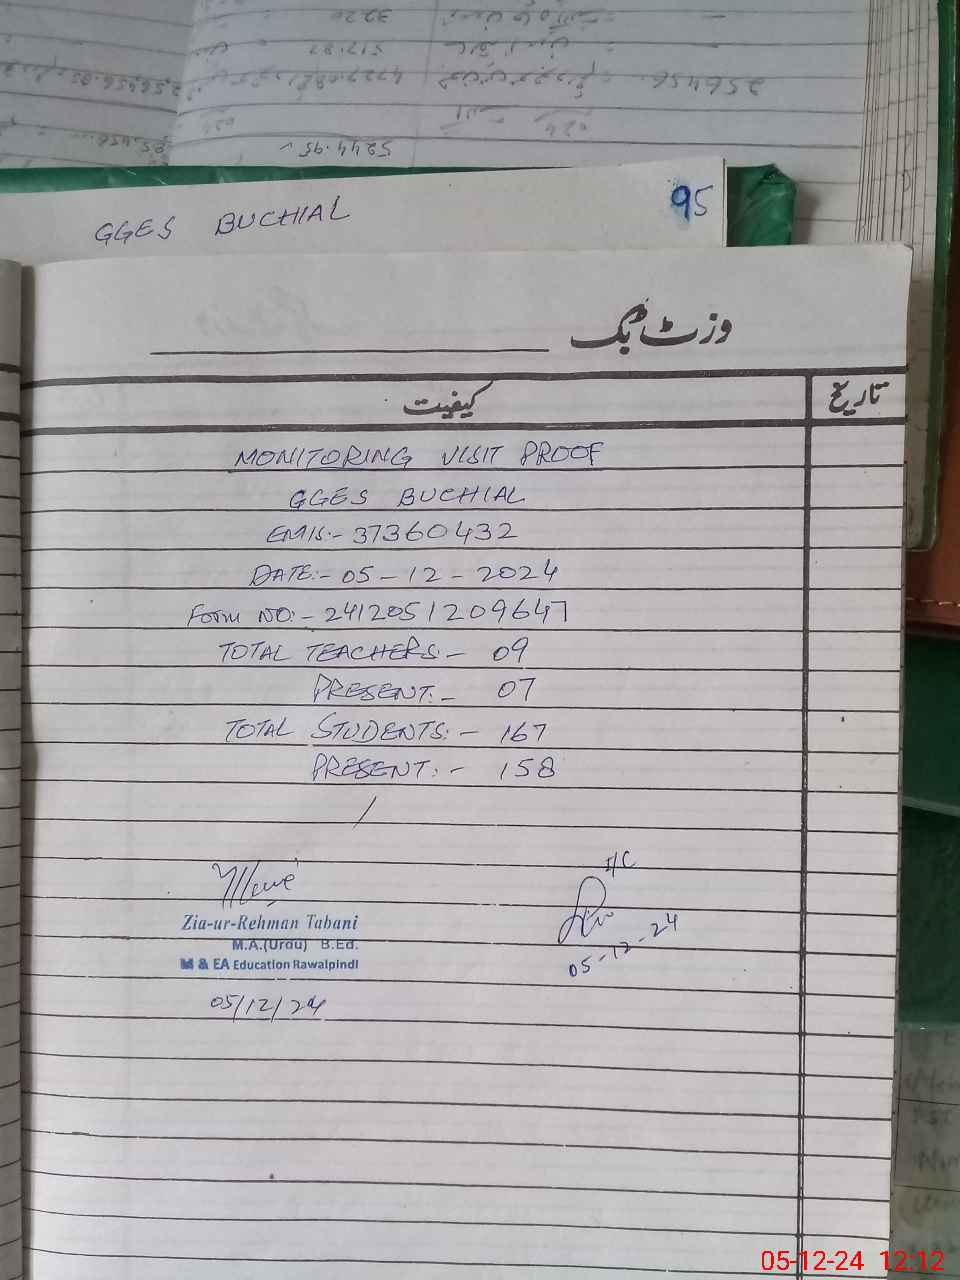 32.20
517.87
256456.
4727.08
5244.95
GGES BUCHIAL 95
وزٹ بک
کیفیت تاریخ
MONITORING VISIT PROOF
GGES BUCHIAL
EMIS:- 37360432
DATE:- 05-12-2024
Form NO:- 2412051209647
TOTAL TEACHERS:- 09
PRESENT:- 07
TOTAL STUDENTS:- 167
PRESENT:- 158
I/C
Zia-ur-Rehman Tabani
M.A.(Urdu) B.Ed.
M & EA Education Rawalpindi
05-12-24
05/12/24
05-12-24 12:12